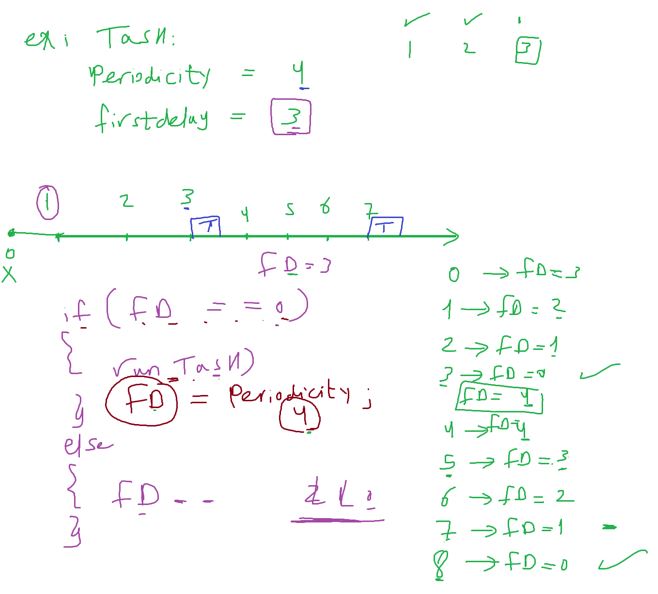 ex: Task:
Periodicity = 4
firstdelay = 3
1 2 3
1 2 3 4 5 6 7
T T
0
X
FD = 3
if (FD == 0)
{
run_Task()
FD = Periodicity;
4
}
else
{
FD--
}
0 → FD = 3
1 → FD = 2
2 → FD = 1
3 → FD = 0
FD = 4
4 → FD = 4
5 → FD = 3
6 → FD = 2
7 → FD = 1
8 → FD = 0